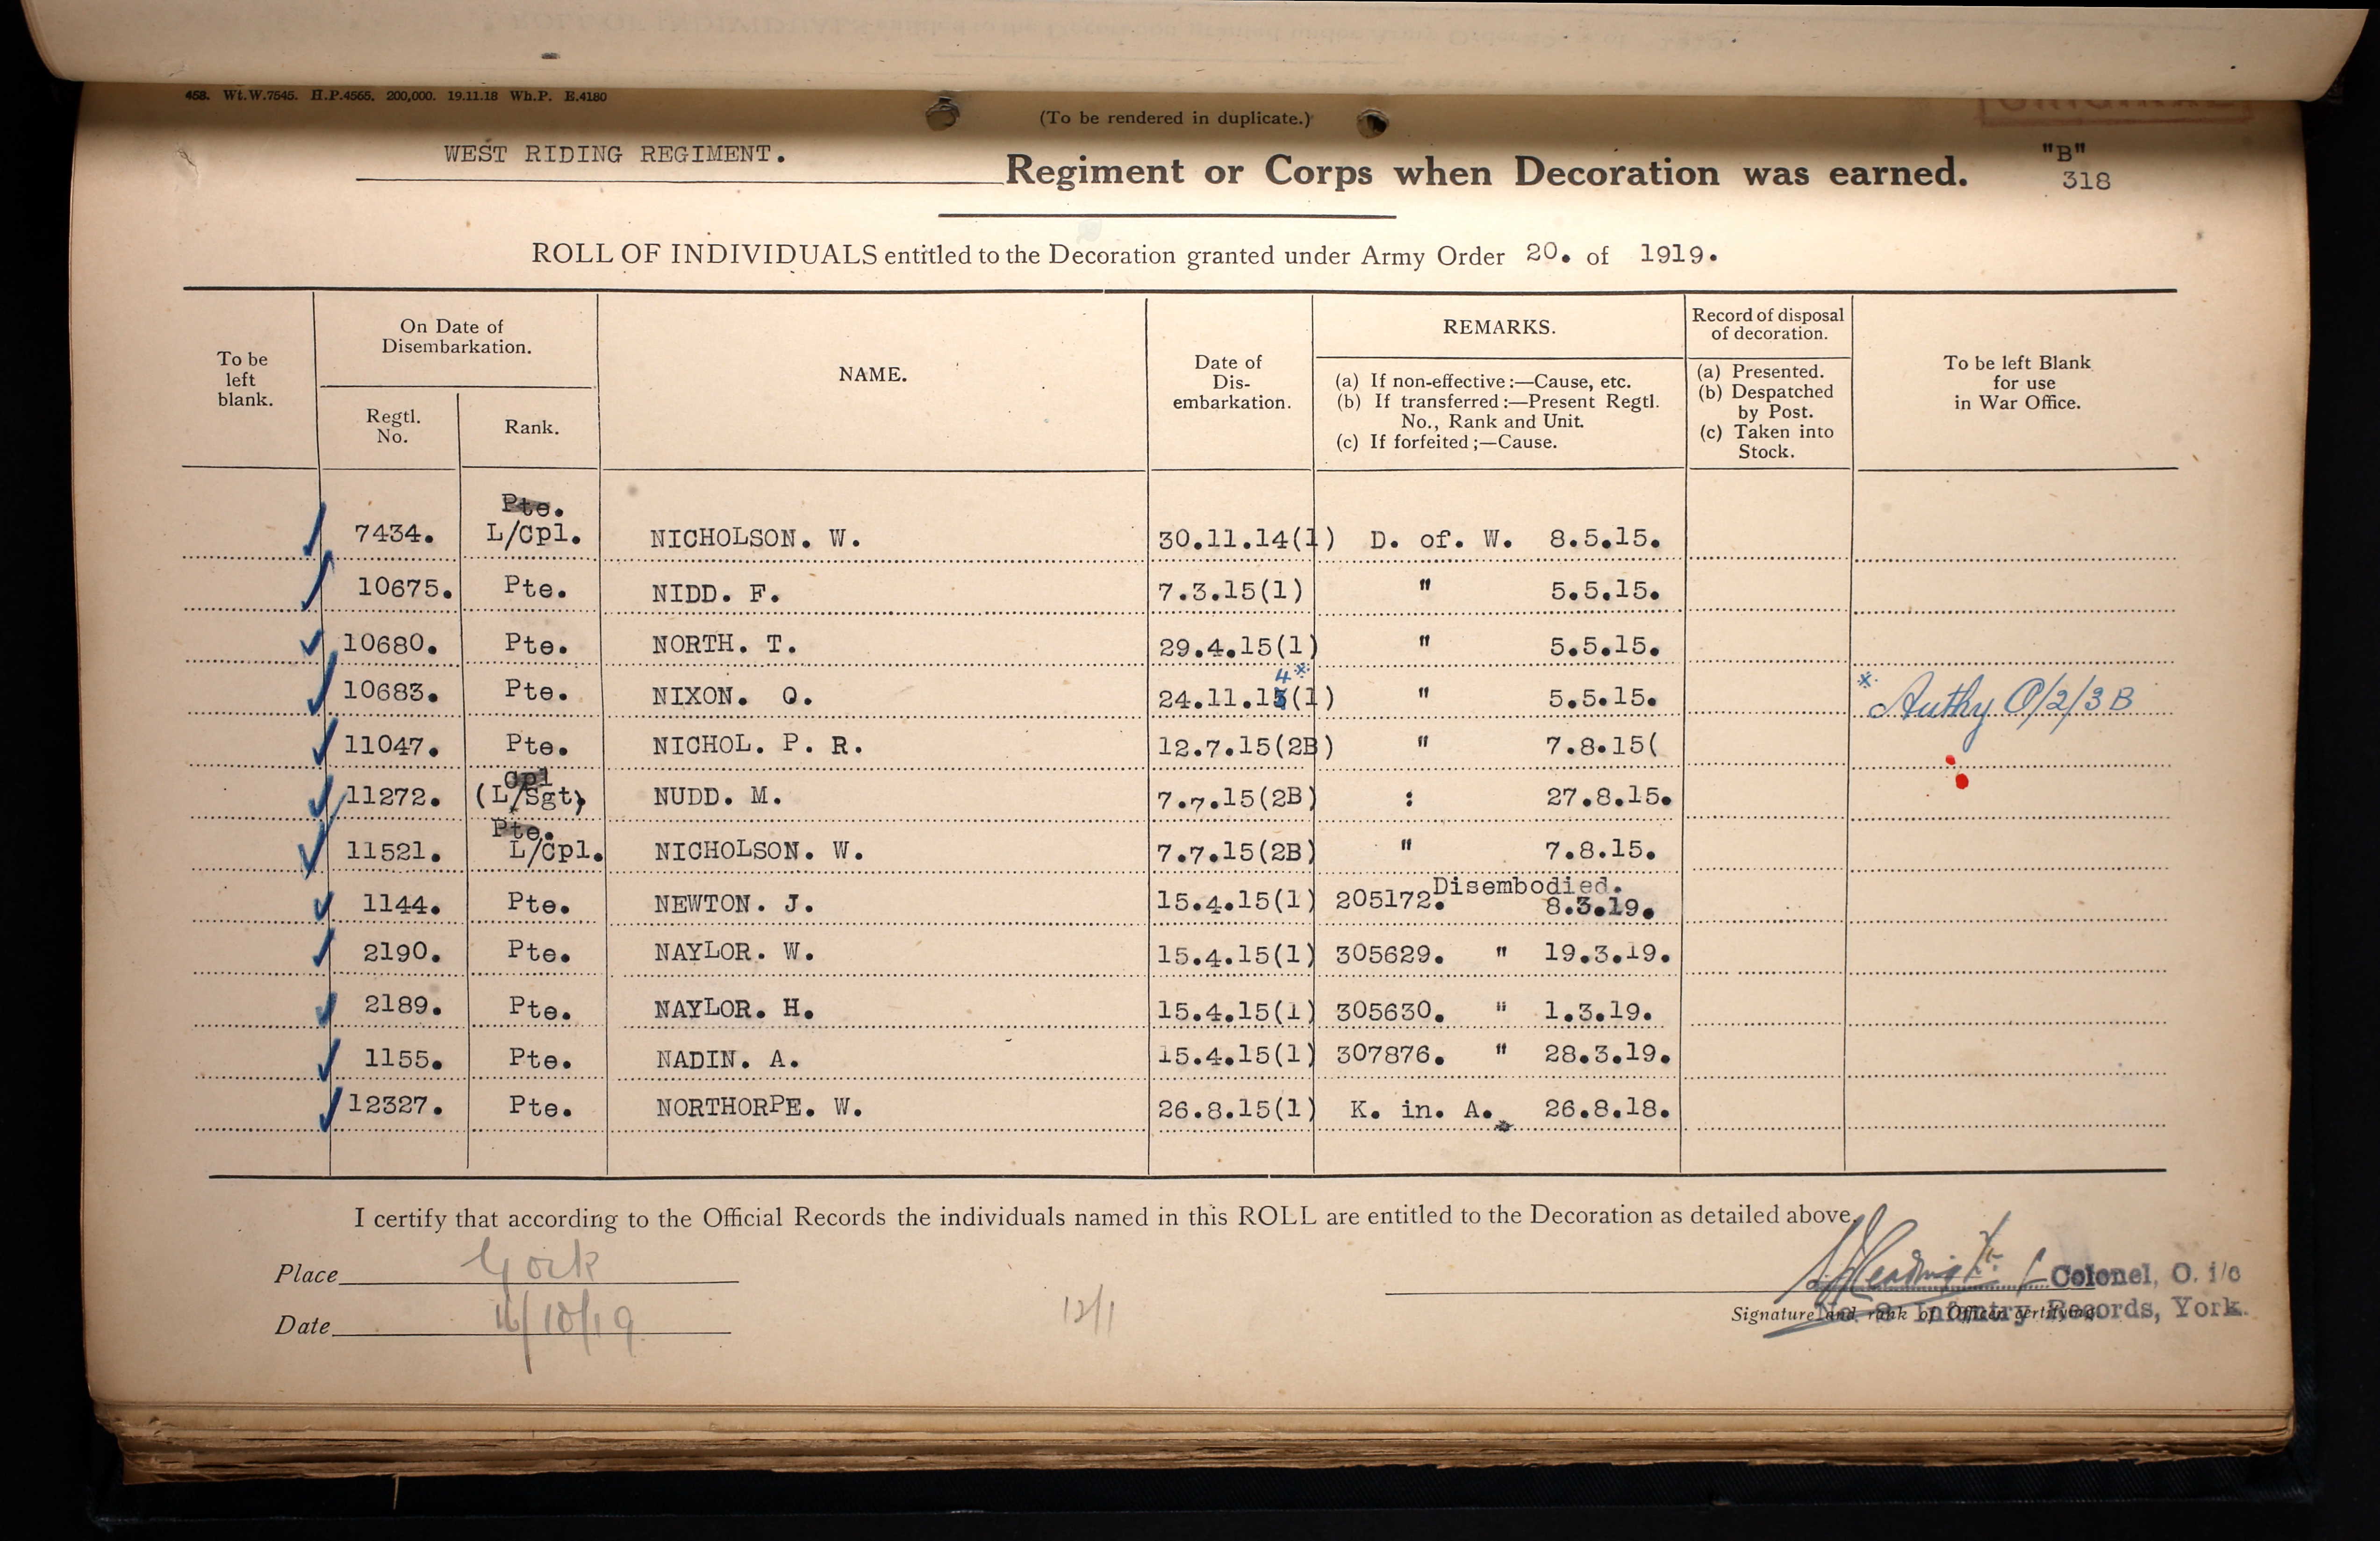 458. Wt.W.7545. H.P.4565. 200,000. 19.11.18 Wh.P. E.4180
(To be rendered in duplicate.)
WEST RIDING REGIMENT. Regiment or Corps when Decoration was earned. "B"
318
ROLL OF INDIVIDUALS entitled to the Decoration granted under Army Order 20. of 1919.
To be left blank.
On Date of Disembarkation.
Regtl. No.
Rank.
NAME.
Date of Dis-embarkation.
REMARKS.
(a) If non-effective:—Cause, etc.
(b) If transferred:—Present Regtl. No., Rank and Unit.
(c) If forfeited;—Cause.
Record of disposal of decoration.
(a) Presented.
(b) Despatched by Post.
(c) Taken into Stock.
To be left Blank for use in War Office.
Pte.
7434. L/Cpl. NICHOLSON. W. 30.11.14(1) D. of. W. 8.5.15.
10675. Pte. NIDD. F. 7.3.15(1) " 5.5.15.
10680. Pte. NORTH. T. 29.4.15(1) " 5.5.15.
4*
10683. Pte. NIXON. O. 24.11.15(1) " 5.5.15. * Authy O/2/3 B
11047. Pte. NICHOL. P. R. 12.7.15(2B) " 7.8.15(
Cpl
11272. (L/Sgt) NUDD. M. 7.7.15(2B) : 27.8.15.
Pte.
11521. L/Cpl. NICHOLSON. W. 7.7.15(2B) " 7.8.15.
Disembodied.
1144. Pte. NEWTON. J. 15.4.15(1) 205172. 8.3.19.
2190. Pte. NAYLOR. W. 15.4.15(1) 305629. " 19.3.19.
2189. Pte. NAYLOR. H. 15.4.15(1) 305630. " 1.3.19.
1155. Pte. NADIN. A. 15.4.15(1) 307876. " 28.3.19.
12327. Pte. NORTHORPE. W. 26.8.15(1) K. in. A. 26.8.18.
I certify that according to the Official Records the individuals named in this ROLL are entitled to the Decoration as detailed above.
Place York
Colonel, O. i/c
Date /10/19
12/1
Signature and rank of Officer certifying
Infantry Records, York.